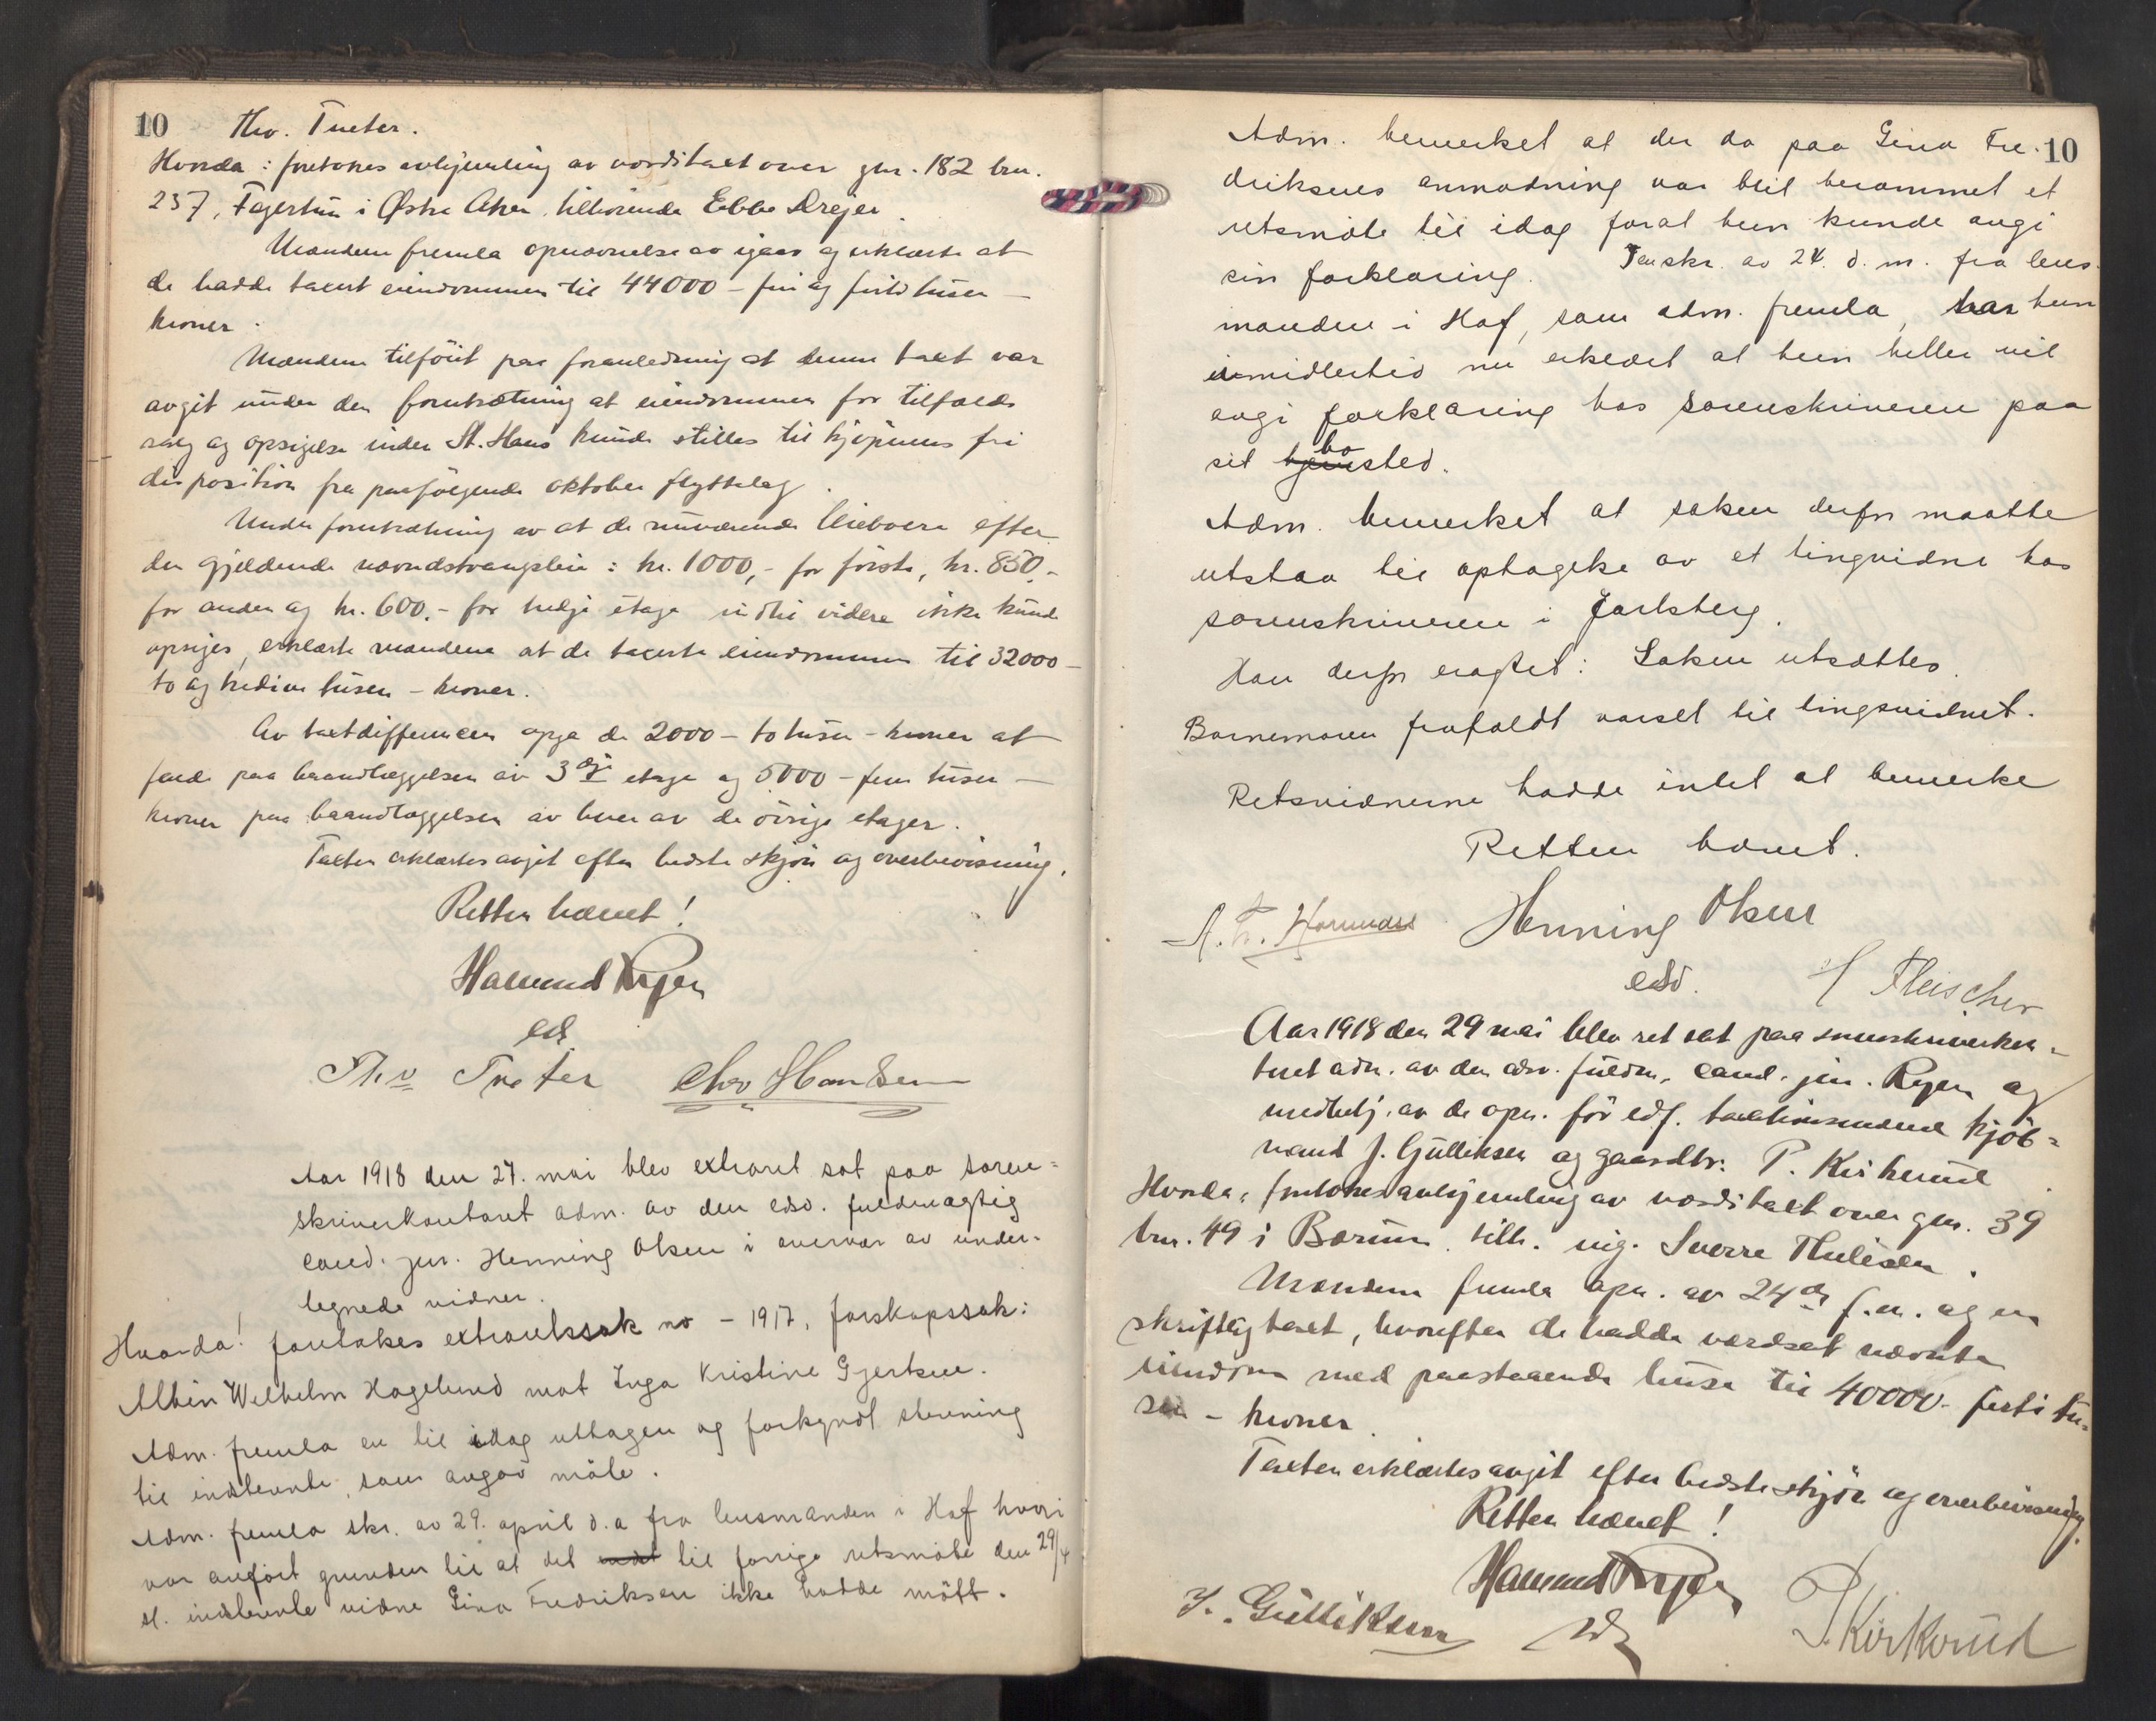 10 Thv. Tueter.
Hvorda: foretokes avhjemling av værditaxt over gnr. 182 brn.
237, Fagertun i Østre Aker, tilhørende Ebbe Dreyer.
Mændene fremla opnævnelse av igaar og erklærte at
de hadde taxert eiendommen til 44000 – firi og førti tusen –
kroner.
Mændene tilföiet paa foranledning at denne taxt var
avgit under den forutsætning at eiendommen for tilfælde
salg og opsigelse inden St. Hans kunde stilles til kjøperens fri
disposition fra paafølgende oktober flyttelag.
Under forutsætning av at de nuværende leieboere efter
den gjældende nævndstvangsleie: kr. 1000,- for første, kr. 850,-
for anden og kr. 600.- for tredje etage indtil videre ikke kunde
opsiges, erklærte mændene at de taxerte eiendommen til 32000 –
to og tredive tusen – kroner.
Av taxtdifferencen opga de 2000 – to tusen – kroner at
falde paa baandlæggelsen av 3dje etage og 5000 – fem tusen –
kroner paa baandlæggelsen av hver av de øvrige etager.
Taxten erklærtes avgit efter bedste skjøn og overbevisning.
Retten hævet!
Halvard Ryen
eds.
Thv Tueter Chr Hansen
Aar 1918 den 27. mai blev extraret sat paa soren=
skriverkontoret adm. av den edsv. fuldmægtig
cand. jur. Henning Olsen i overvær av under-
tegnede vidner.
Hvorda! foretokes extraretssak no – 1917, farskapssak:
Albin Wilhelm Hagelund mot Inga Kristine Gjertsen.
Adm. fremla en til idag uttagen og forkyndt stevning
til indstevnte, som angav møte.
Adm. fremla skr. av 29. april d.a fra lensmanden i Hof hvori
var anført grunden til at det til forrige retsmøte den 29/4
sl. indstevnte vidne Gina Fredriksen ikke hadde møtt.
Adm. bemerket at der da paa Gina Fre- 10
driksens anmodning var blit berammet et
retsmøte til idag forat hun kunde avgi
sin forklaring. I en skr. av 24. d. m. fra lens-
manden i Hof, som adm. fremla, har hun
imidlertid nu erklæret at hun heller vil
avgi forklaring hos sorenskriveren paa
sit bosted.
Adm. bemerket at saken derfor maatte
utstaa til optagelse av et tingsvidne hos
sorenskriveren i Jarlsberg.
Han derfor eragtet: Saken utsættes.
Barnemoren frafaldt varsel til tingsvidnet.
Retsvidnerne hadde intet at bemerke
Retten hævet.
A. Fr. Henning Olsen
edsv. H Fleischer
Aar 1918 den 29 mai blev ret sat paa sorenskriverkon-
toret adm. av den edsv. fuldm., cand. jur. Ryen og
meddelj. av de opn. før edf. taxtionsmænd kjöb=
mand J. Gulliksen og gaardbr. P. Kirkerud.
Hvorda: foretokes avhjemling av værditaxt over gnr. 39
brn. 49 i Bærum, tilh. ing. Sverre Thulesen.
Mændene fremla opn. av 24de f.m. og en
skriftlig taxt, hvorefter de hadde værdsat nævnte
eiendom med paastaaende huse til 40000 – førti tu=
sen – kroner.
Taxten erklærtes avgit efter bedste skjön og overbevisning.
Retten hævet!
Halvard Ryen
J. Gulliksen eds P. Kirkerud